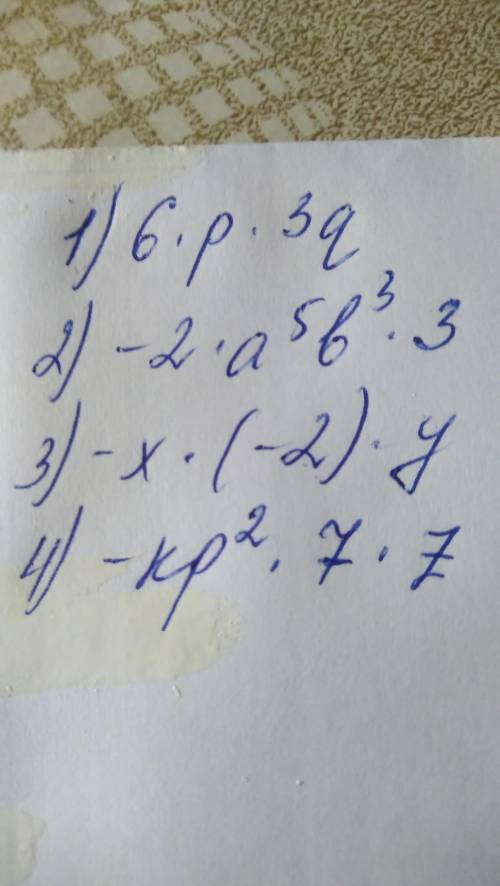 1) 6 · p · 3q
2) -2 · a⁵b³ · 3
3) -x · (-2) · y
4) -kp² · 7 · z